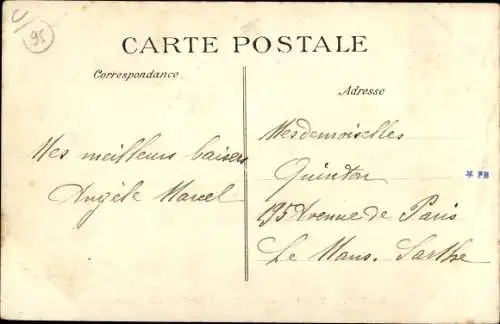 95
CARTE POSTALE
Correspondance
Mes meilleurs baisers
Angèle Marcel
Adresse
Mesdemoiselles
Quinton
195 Avenue de Paris
Le Mans. Sarthe
* PB